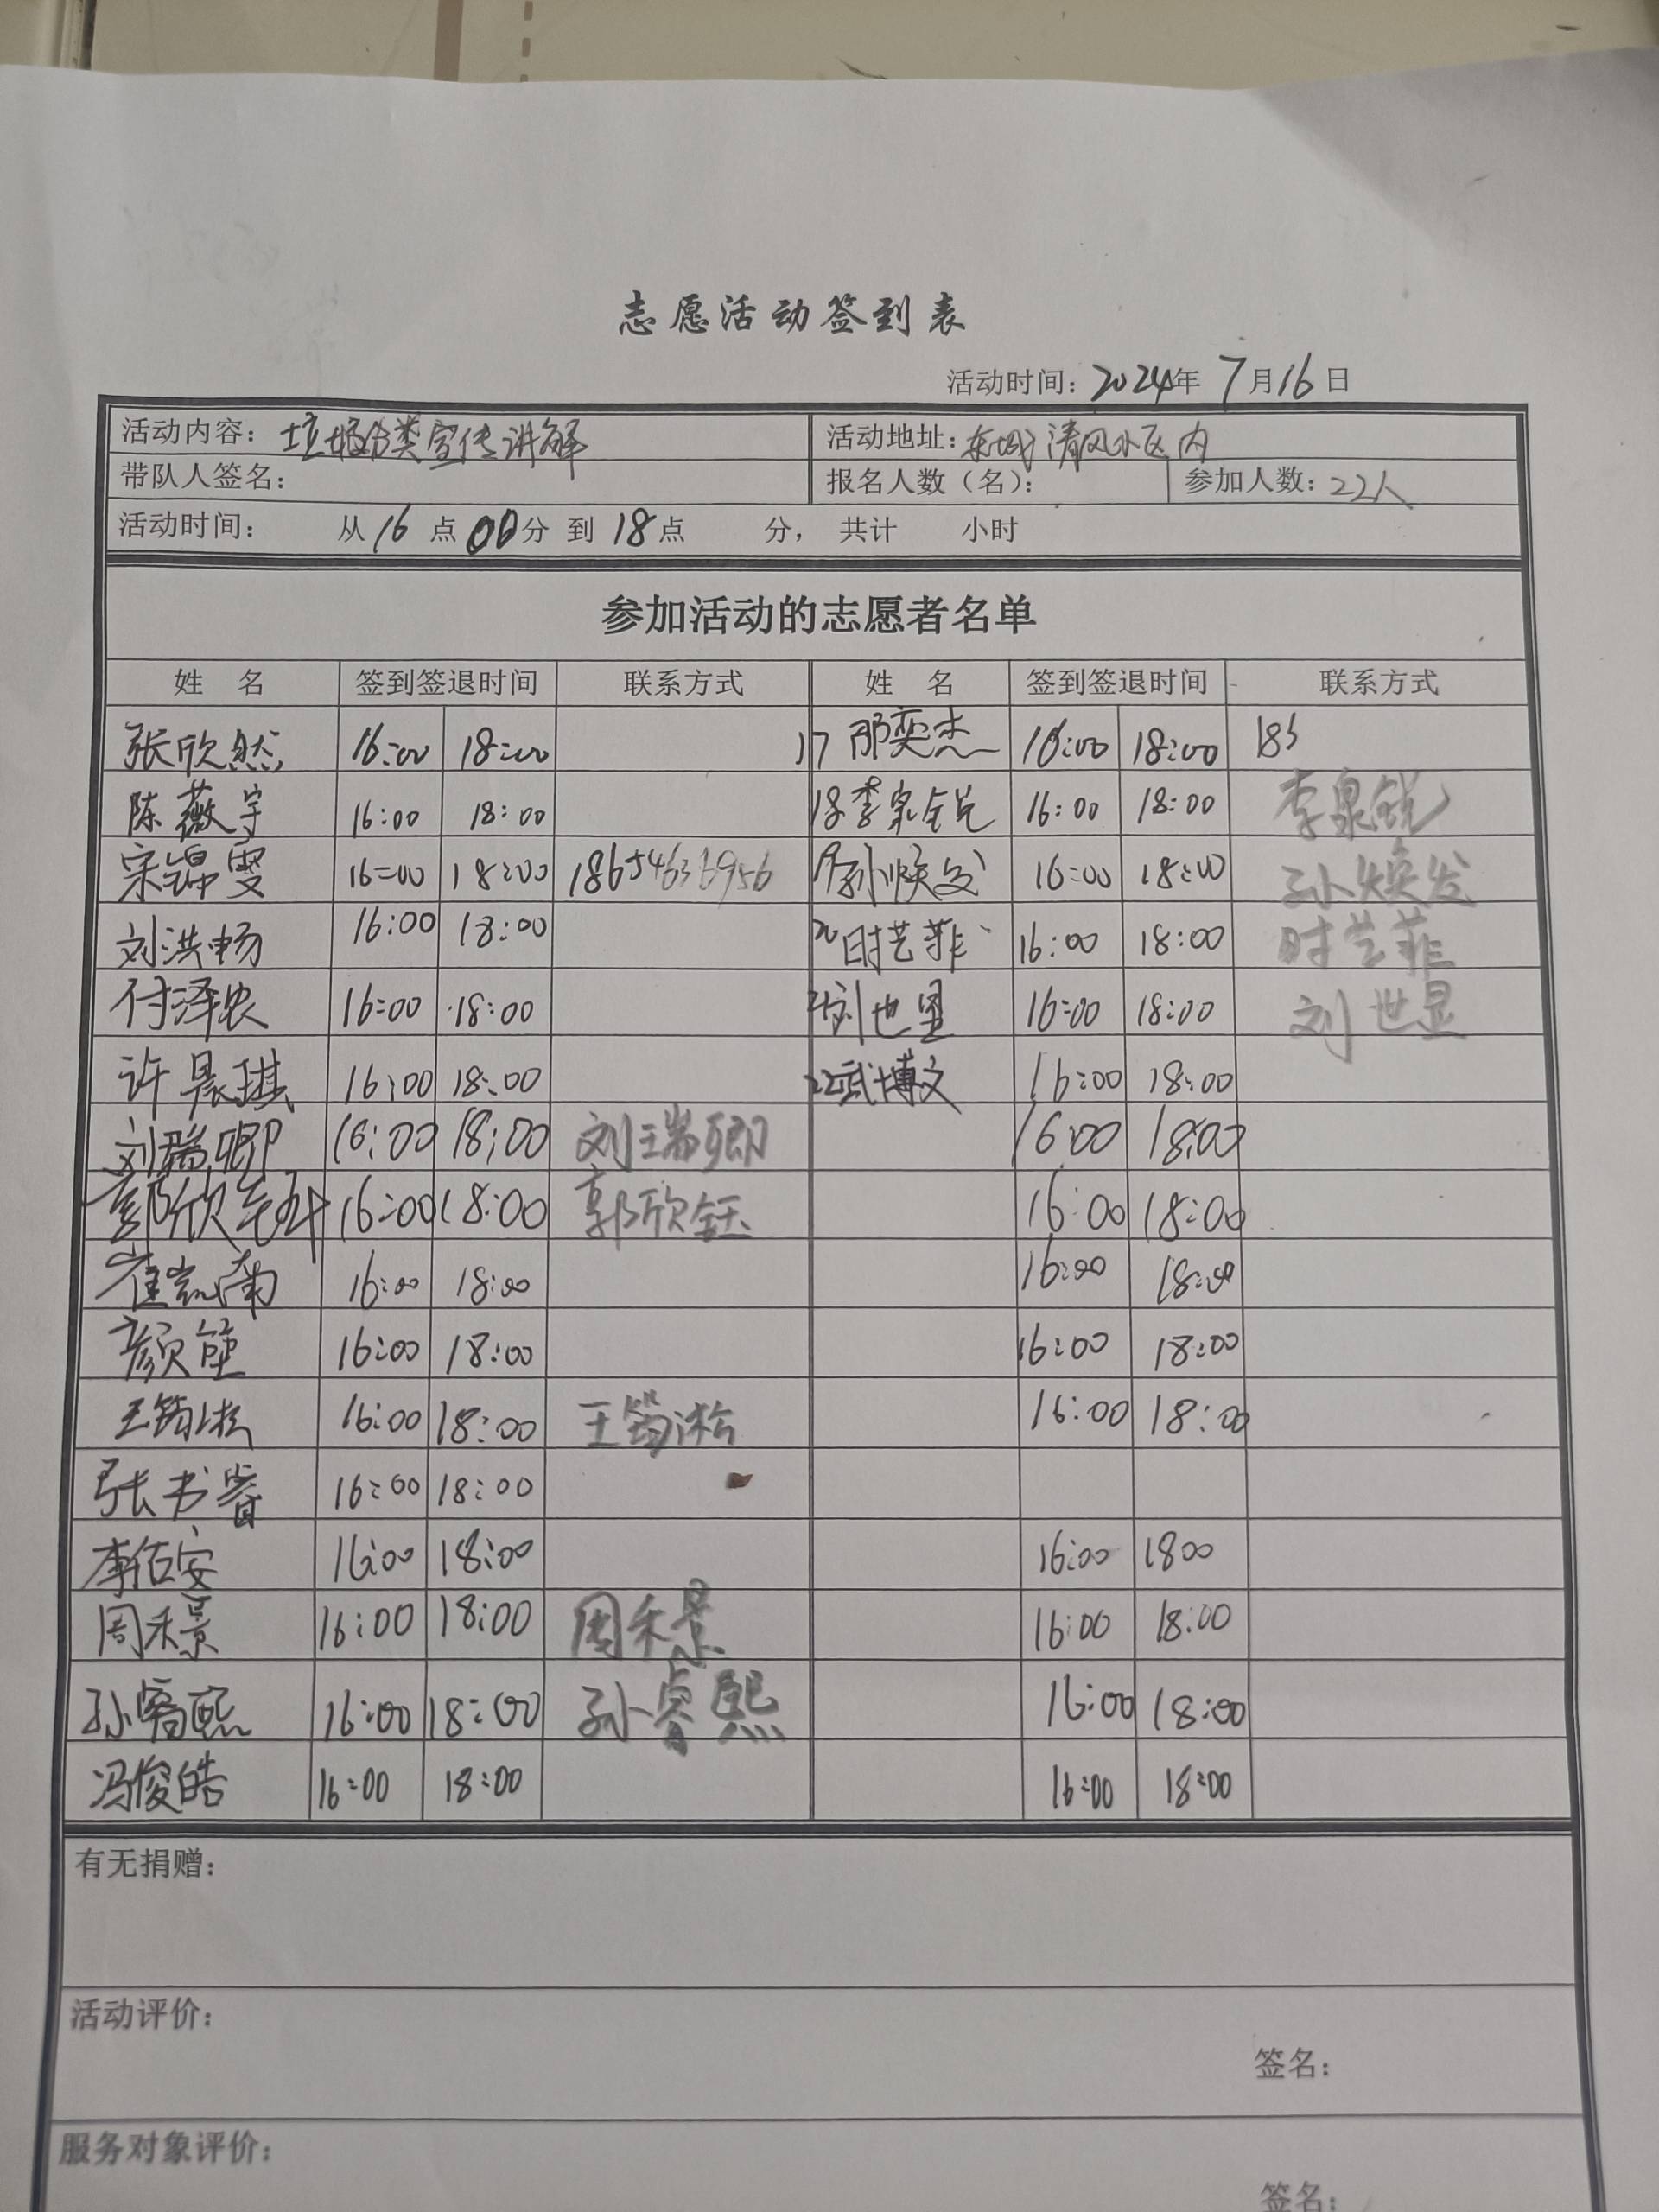 志愿活动签到表
活动时间：2024年 7月16日
活动内容：垃圾分类宣传讲解 活动地址：东城清风小区内
带队人签名： 报名人数（名）： 参加人数：22人
活动时间： 从16点00分 到 18点 分， 共计 小时
参加活动的志愿者名单
姓 名 签到签退时间 联系方式 姓 名 签到签退时间 联系方式
张欣然 16:00 18:00 17 邢奕杰 16:00 18:00 183
陈薇宇 16:00 18:00 18李泉锐 16:00 18:00 李泉锐
宋锦雯 16:00 18:00 18654636956 19孙焕发 16:00 18:00 孙焕发
刘洪畅 16:00 18:00 20时艺菲 16:00 18:00 时艺菲
付泽农 16:00 18:00 21刘世显 16:00 18:00 刘世显
许晨琪 16:00 18:00 22武博文 16:00 18:00
刘瑞卿 16:00 18:00 刘瑞卿 16:00 18:00
郭欣钰 16:00 18:00 郭欣钰 16:00 18:00
崔凯南 16:00 18:00 16:00 18:00
颜 16:00 18:00 16:00 18:00
王筠淞 16:00 18:00 王筠淞 16:00 18:00
张书睿 16:00 18:00
李佑安 16:00 18:00 16:00 1800
周禾景 16:00 18:00 周禾景 16:00 18:00
孙睿熙 16:00 18:00 孙睿熙 16:00 18:00
冯俊皓 16:00 18:00 16:00 18:00
有无捐赠：
活动评价：
签名：
服务对象评价：
签名：